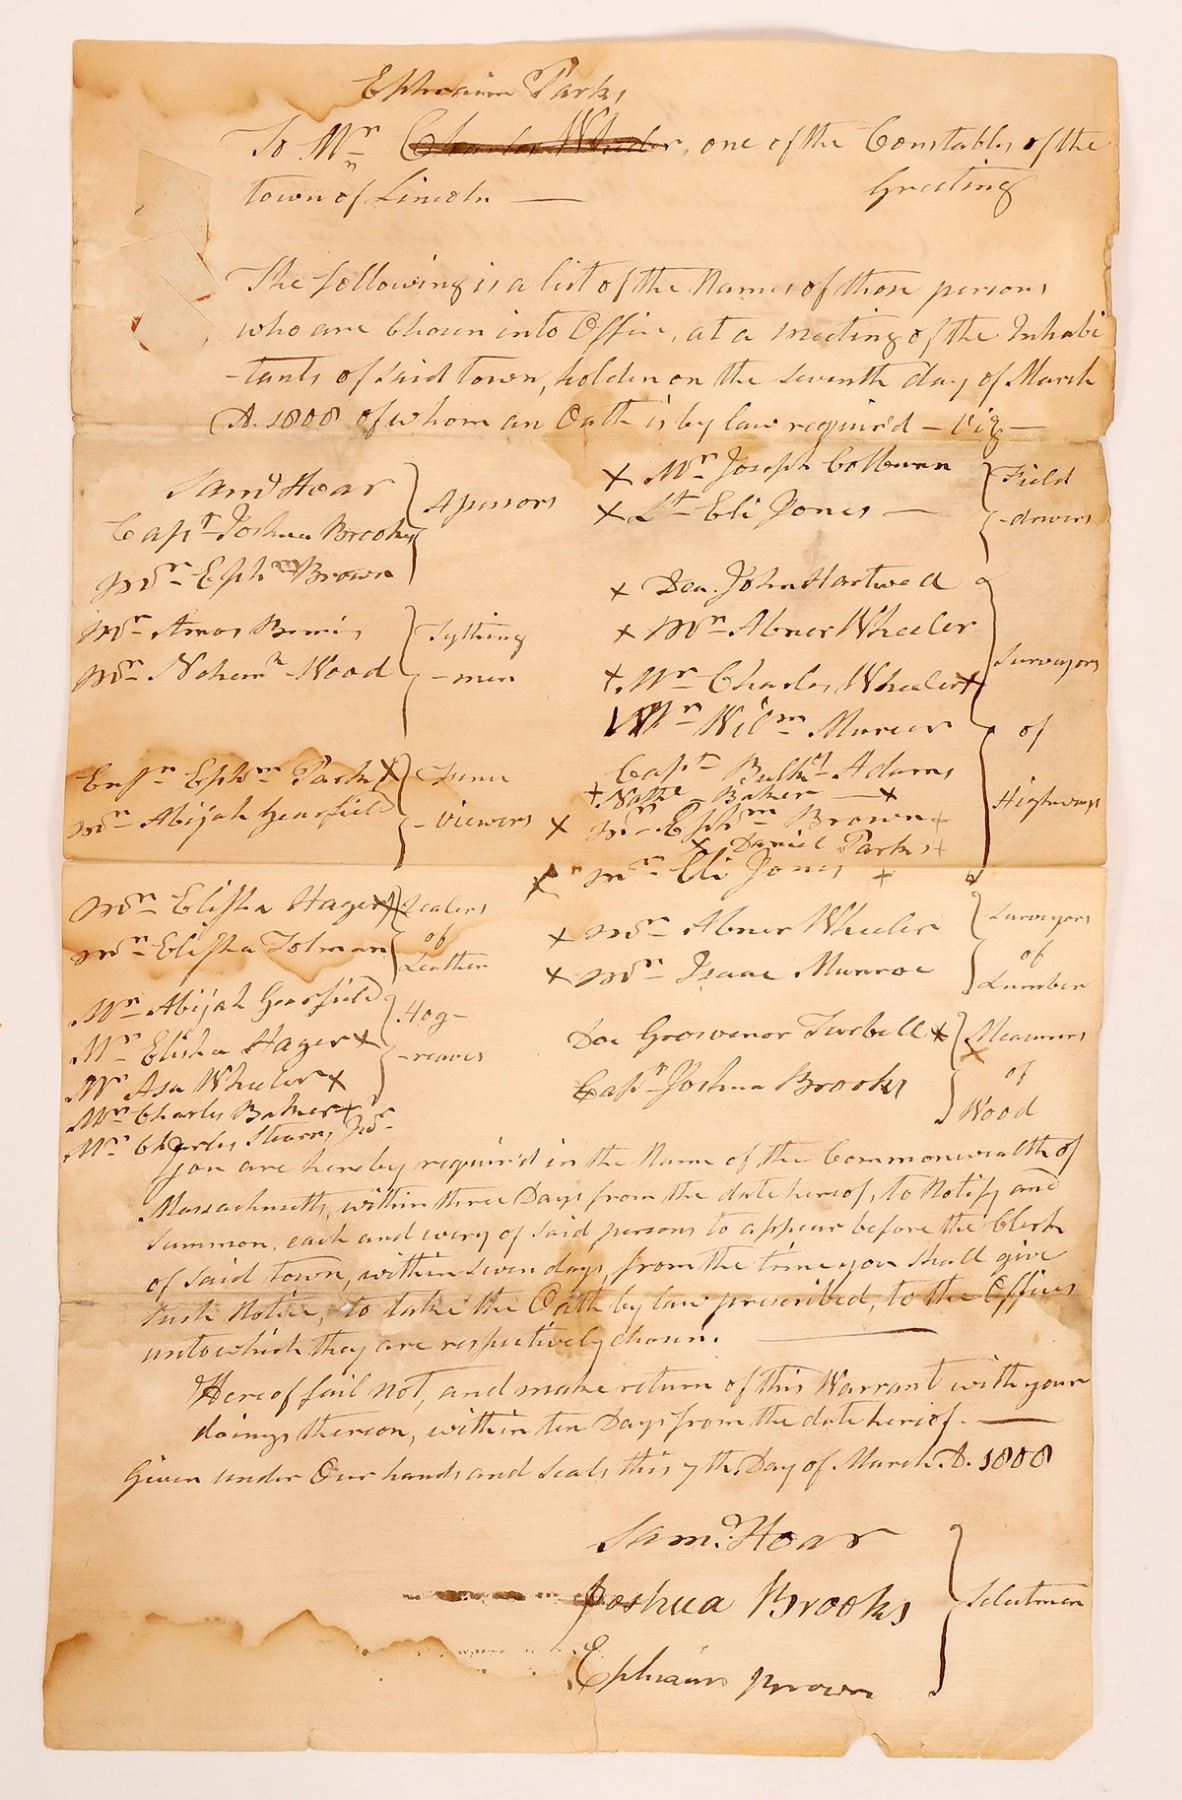 Ephraim Parks
To Mr Charles Wheeler, one of the Constables of the
town of Lincoln — Greeting
The following is a list of the Names of those persons
who are Chosen into Office, at a meeting of the Inhabi
-tants of said town, holden on the seventh day of March
A. 1808 of whom an Oath is by law requir'd – Viz —
Saml Hoar
Capt Joshua Brooks
Mr Ephm Brown
Assessors
Mr Amos Bemis
Mr Nehemh Wood
Tything
-men
Ensn Ephm Parks X
Mr Abijah Gearfield
Fence
-Viewers
Mr Elisha Hager X
Mr Elisha Tolman
Sealers
of
Leather
Mr Abijah Gearfield
Mr Elisha Hager X
Mr Asa Wheeler X
Mr Charles Baker +
Mr Charles Stearns Jur
Hog-
-reaves
X Mr Joseph Colburn
X Lt Eli Jones —
Field
-drivers
X Dea. John Hartwell
X Mr Abner Wheeler
+ Mr Charles Wheeler +
Mr Willm Mercer
Capt Bulkly Adams
+ Nathl Baker — X
X Mr Ephm Brown +
X Daniel Parks +
X Mr Eli Jones +
Surveyors
of
Highways
X Mr Abner Wheeler
X Mr Isaac Munroe
Surveyors
of
Lumber
Doc Grosvenor Tarbell X
Capt Joshua Brooks
Measurers
X
of
Wood
You are hereby requir'd in the Name of the Commonwealth of
Massachusetts, within three Days from the date hereof, to Notify and
Summon, each and every of said persons to appear before the Clerk
of said town, within seven days, from the time you shall give
such Notice, to take the Oath by law prescribed, to the Offices
unto which they are respectively chosen. —
Hereof fail not, and make return of this Warrant with your
doings thereon, within ten Days from the date hereof. —
Given under Our hands and Seals this 7th Day of March A. 1808
Saml Hoar
Joshua Brooks
Ephraim Brown
Selectmen